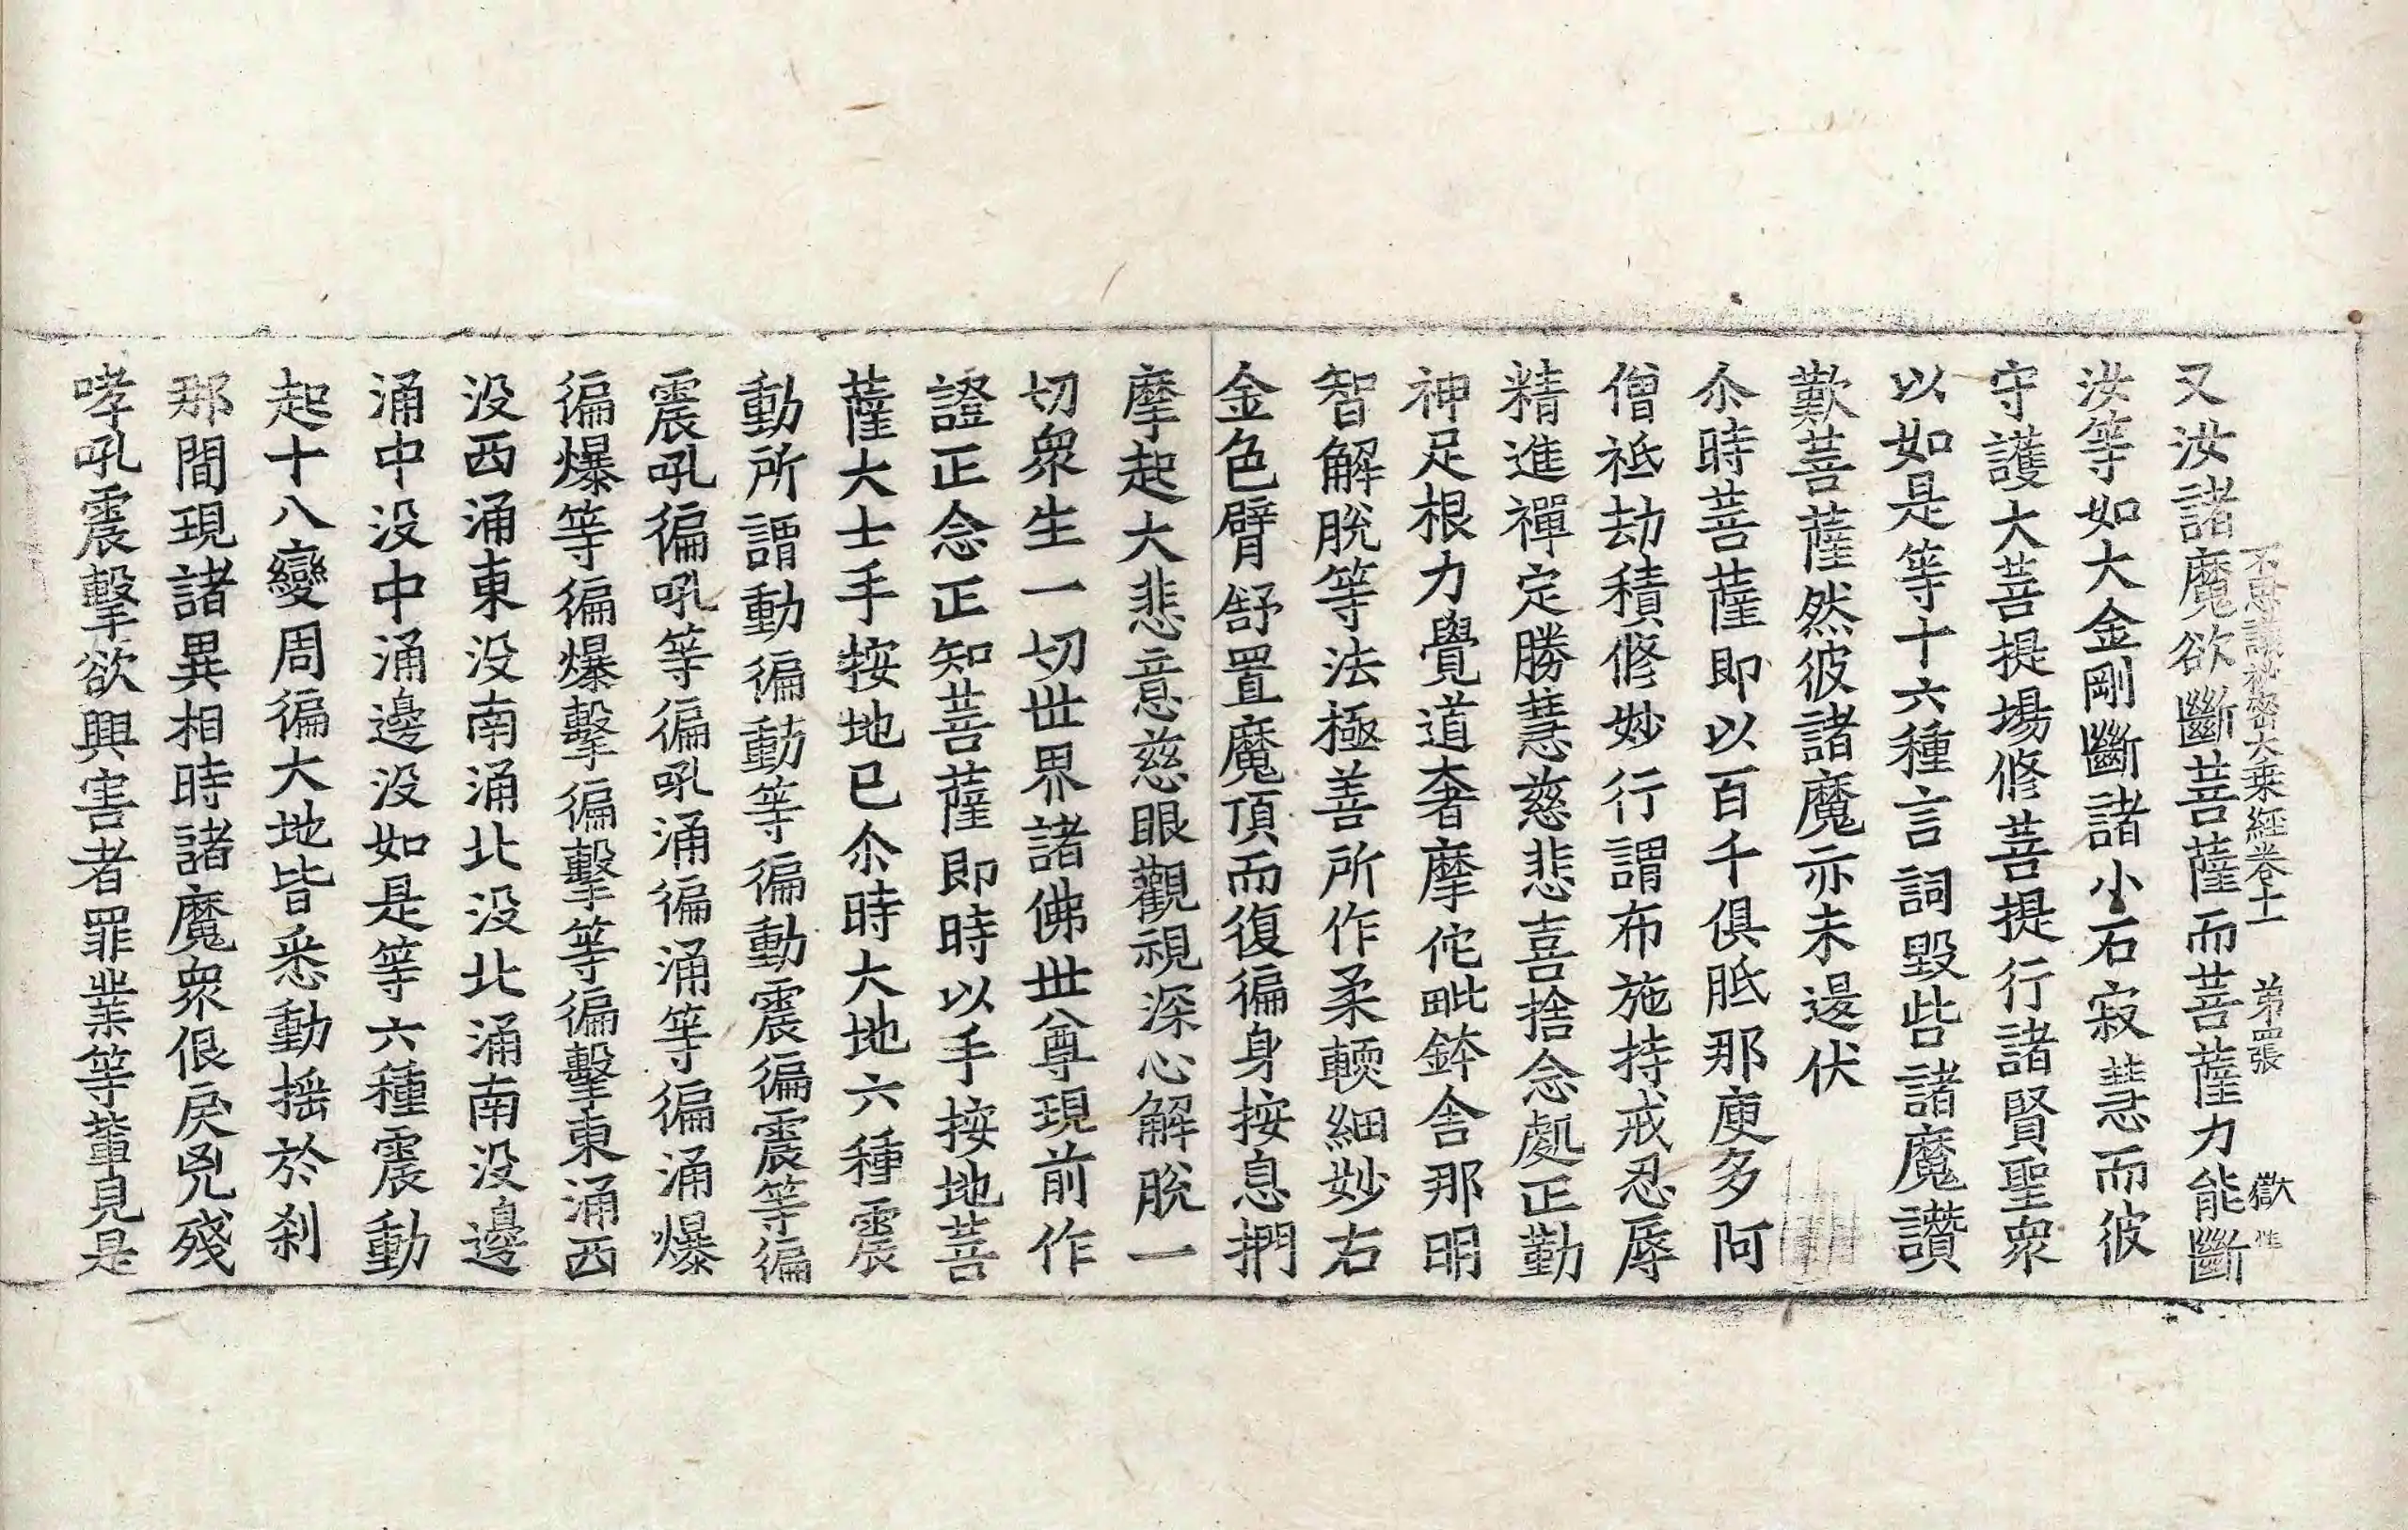 又汝諸魔欲斷菩薩而菩薩力能斷
不思議秘密大乗經卷十一 苐四張 獻
汝等如大金剛斷諸小石寂慧而彼
守護大菩提場修菩提行諸賢聖衆
以如是等十六種言詞毀呰諸魔讚
歎菩薩然彼諸魔亦未退伏
尒時菩薩即以百千俱胝那庾多阿
僧祇劫積修妙行謂布施持戒忍辱
精進禪定勝慧慈悲喜捨念處正勤
神足根力覺道奢摩佗毗鉢舍那明
智解脫等法極善所作柔輭細妙右
金色臂舒置魔頂而復徧身按息捫
摩起大悲意慈眼觀視深心解脫一
切衆生一切世界諸佛世尊現前作
證正念正知菩薩即時以手按地菩
薩大士手按地已尒時大地六種震
動所謂動徧動等徧動震徧震等徧
震吼徧吼等徧吼涌徧涌等徧涌爆
徧爆等徧爆擊徧擊等徧擊東涌西
没西涌東没南涌北没北涌南没邊
涌中没中涌邊没如是等六種震動
起十八變周徧大地皆悉動搖於刹
那間現諸異相時諸魔衆佷戾兇殘
哮吼震擊欲興害者罪業等輩見是